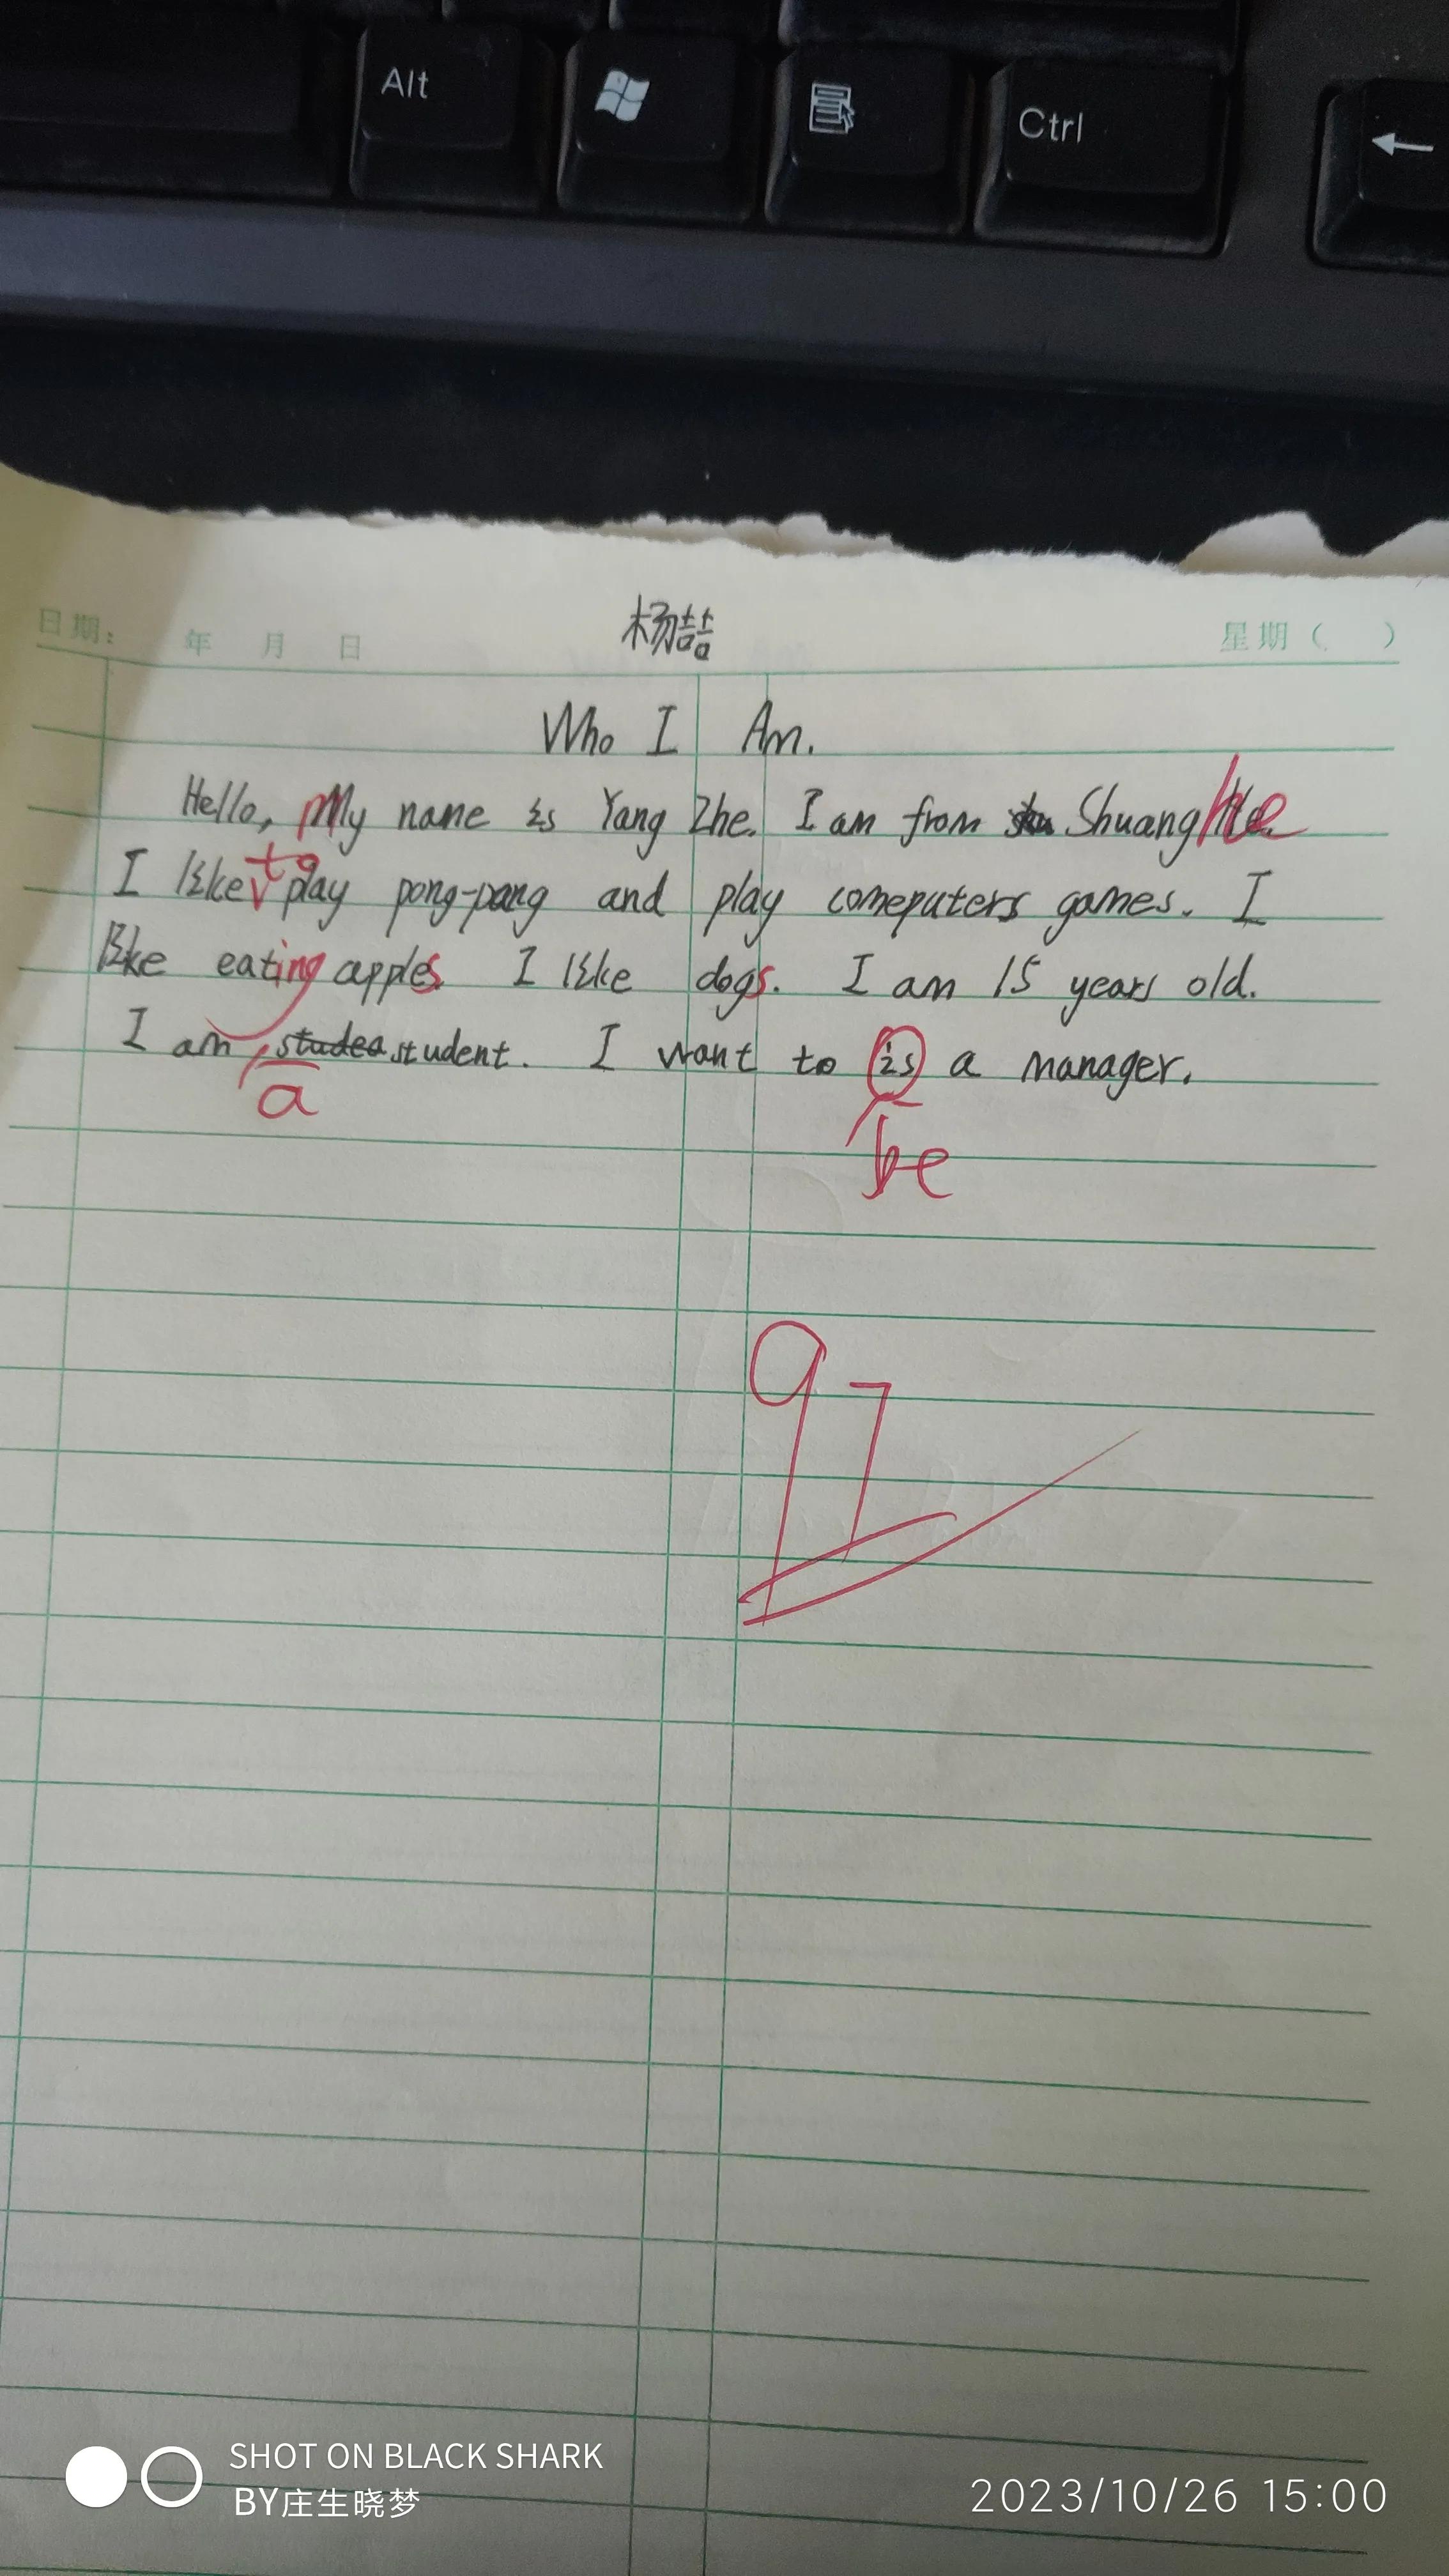 Alt Ctrl ←
日期: 年 月 日 杨喆 星期( )
Who I Am.
Hello, My name is Yang Zhe. I am from Shuang
to
I like play pong-pang and play comeputers games. I
like eating apples. I like dogs. I am 15 years old.
I am student. I want to is a manager.
a
be
97
SHOT ON BLACK SHARK
BY庄生晓梦
2023/10/26 15:00